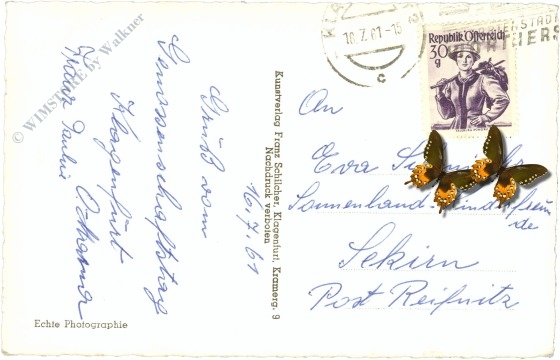 © WIMSTORE by Walkner
Gruß vom
Genossenschaftstag
Klagenfurt
Franz Paulin
16.7.61
Kunstverlag Franz Schilcher, Klagenfurt, Kramerg. 9
Nachdruck verboten
Echte Photographie
16.7.61-15
c
Republik Österreich
30
g
An
Eva
Sonnenland
de
Sekirn
Post Reifnitz